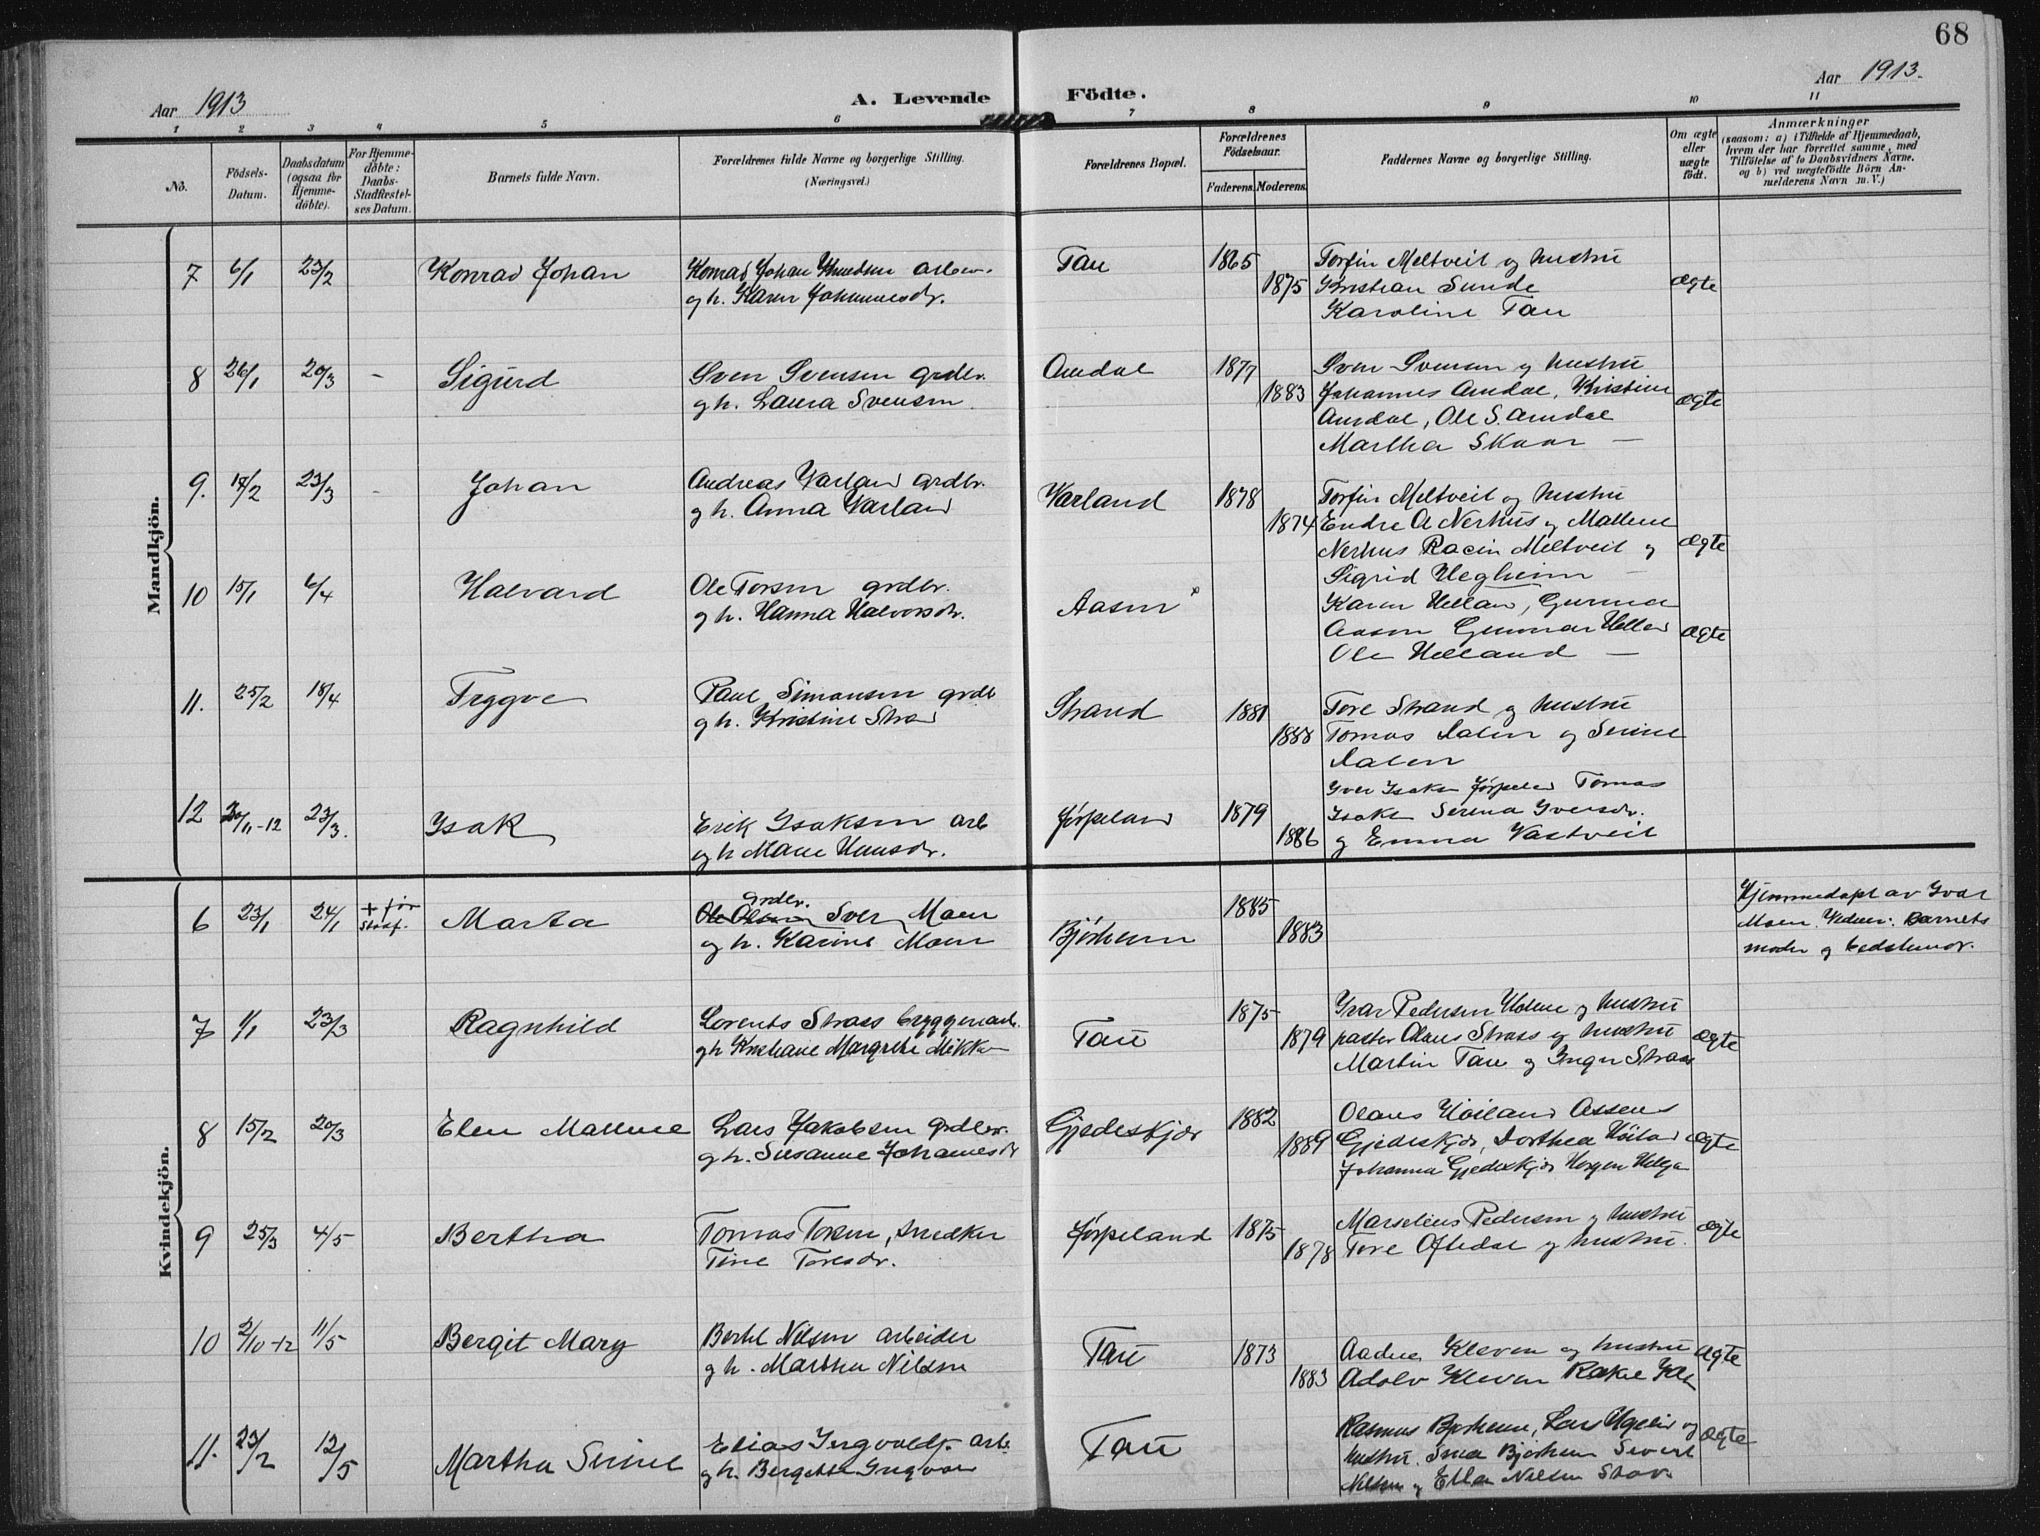 68
Aar 1913
A. Levende Födte.
Aar 1913.
1 2 3 4 5 6 7 8 9 10 11
No.
Födsels-Datum.
Daabsdatum (ogsaa for Hjemme-döbte).
For Hjemme-döbte: Daabs-Stadfæstel-ses Datum.
Barnets fulde Navn.
Forældrenes fulde Navne og borgerlige Stilling. (Næringsvei.)
Forældrenes Bopæl.
Forældrenes Födselsaar.
Faderens. Moderens.
Faddernes Navne og borgerlige Stilling.
Om ægte eller uægte født.
Anmærkninger
(saasom: a) i Tilfælde af Hjemmedaab, hvem der har forrettet samme, med Tilføielse af to Daabsvidners Navne. og b) ved uægtefödte Börn An-melderens Navn m. V.)
Mandkjön.
7 6/1 23/2 Konrad Johan
Konrad Johan Knudsen arbeid.
og h. Karen Johannesdr.
Tau 1865 1875
Torfin Meltveit og hustru
Kristian Sunde
Karoline Tau
ægte
8 26/1 20/3 - Sigurd
Sven Svensen grdbr.
og h. Laura Svensen
Amdal 1877 1883
Sven Svensen og hustru
Johannes Amdal, Kristine
Amdal, Ole S. Amdal
Martha Skaar —
ægte
9. 14/2 23/3 - Johan
Andreas Varland grdbr.
og h. Anna Varland
Varland 1878 1874
Torfin Meltveit og hustru
Endre A Nerhus og Mallene
Nerhus Meltveit og
Sigrid —
ægte
10 15/1 6/4 Halvard
Ole Torsen grdbr.
og h. Hanna Halvorsdr.
Aasen
Karen Helland,
Aasen Gunnar Helland
Ole Helland —
ægte
11. 25/2 18/4 Trygve
Paul Simonsen grdbr
og h. Kristine Strand
Strand 1881 1888
Tore Strand og hustru
Tomas Dalen og Serine
Dalen
12 20/11-12 23/3. Isak
Erik Isaksen arb
og h Marie Hansdr.
Jørpeland 1879 1886
Iver Isaksen Jørpeland Tomas
Isaksen Serena Iversdr.
og Emma Vastveit
Kvindekjön.
6 23/1 24/1 + før Stadf. Marta
grdbr.
Ole Olsen Sven Moen
og h. Karine Moen
Bjørheim 1885 1883
Hjemmedøpt av Ivar
Moen. Vidner: Barnets
moder og bedstemor.
7 1/1 23/3 Ragnhild
Lorents Strass byggerarb.
og h Kristiane Margrete Mikkels
Tau 1875 1879
Ivar Pedersen Holme og hustru
pastor Olaus Strass og hustru
Martin Tau og Inger Strass
ægte
8 15/2 20/3 Elen Mallene
Lars Jakobsen grdbr.
og h. Susanne Johannesdr
Gjedeskjær 1882 1889
Olaus Høiland Assens
Gjedeskjær, Dorthea Høiland
Johanna Gjedeskjær Helga
ægte
9 25/3 4/5 Bertha
Tomas Torsen, snedker
Tine Toresdr.
Jørpeland 1875 1878
Marselius Pedersen og hustru
Tore Oftedal og hustru.
ægte
10 2/10-12 11/5 Bergit Mary
Bertel Nilsen arbeider
og h. Martha Nilsen
Tau 1873 1883
Kleven og hustru
Adolv Kleven Rakel Kleven
ægte
11. 23/2 12/5 Martha Serine
Elias Ingvaldsen arb.
og h. Bergitte Ingvald
Tau
Rasmus Bjørheim, Lars og
hustru. Bjørheim Sivert
Nilsen og Ella Nilsen
ægte